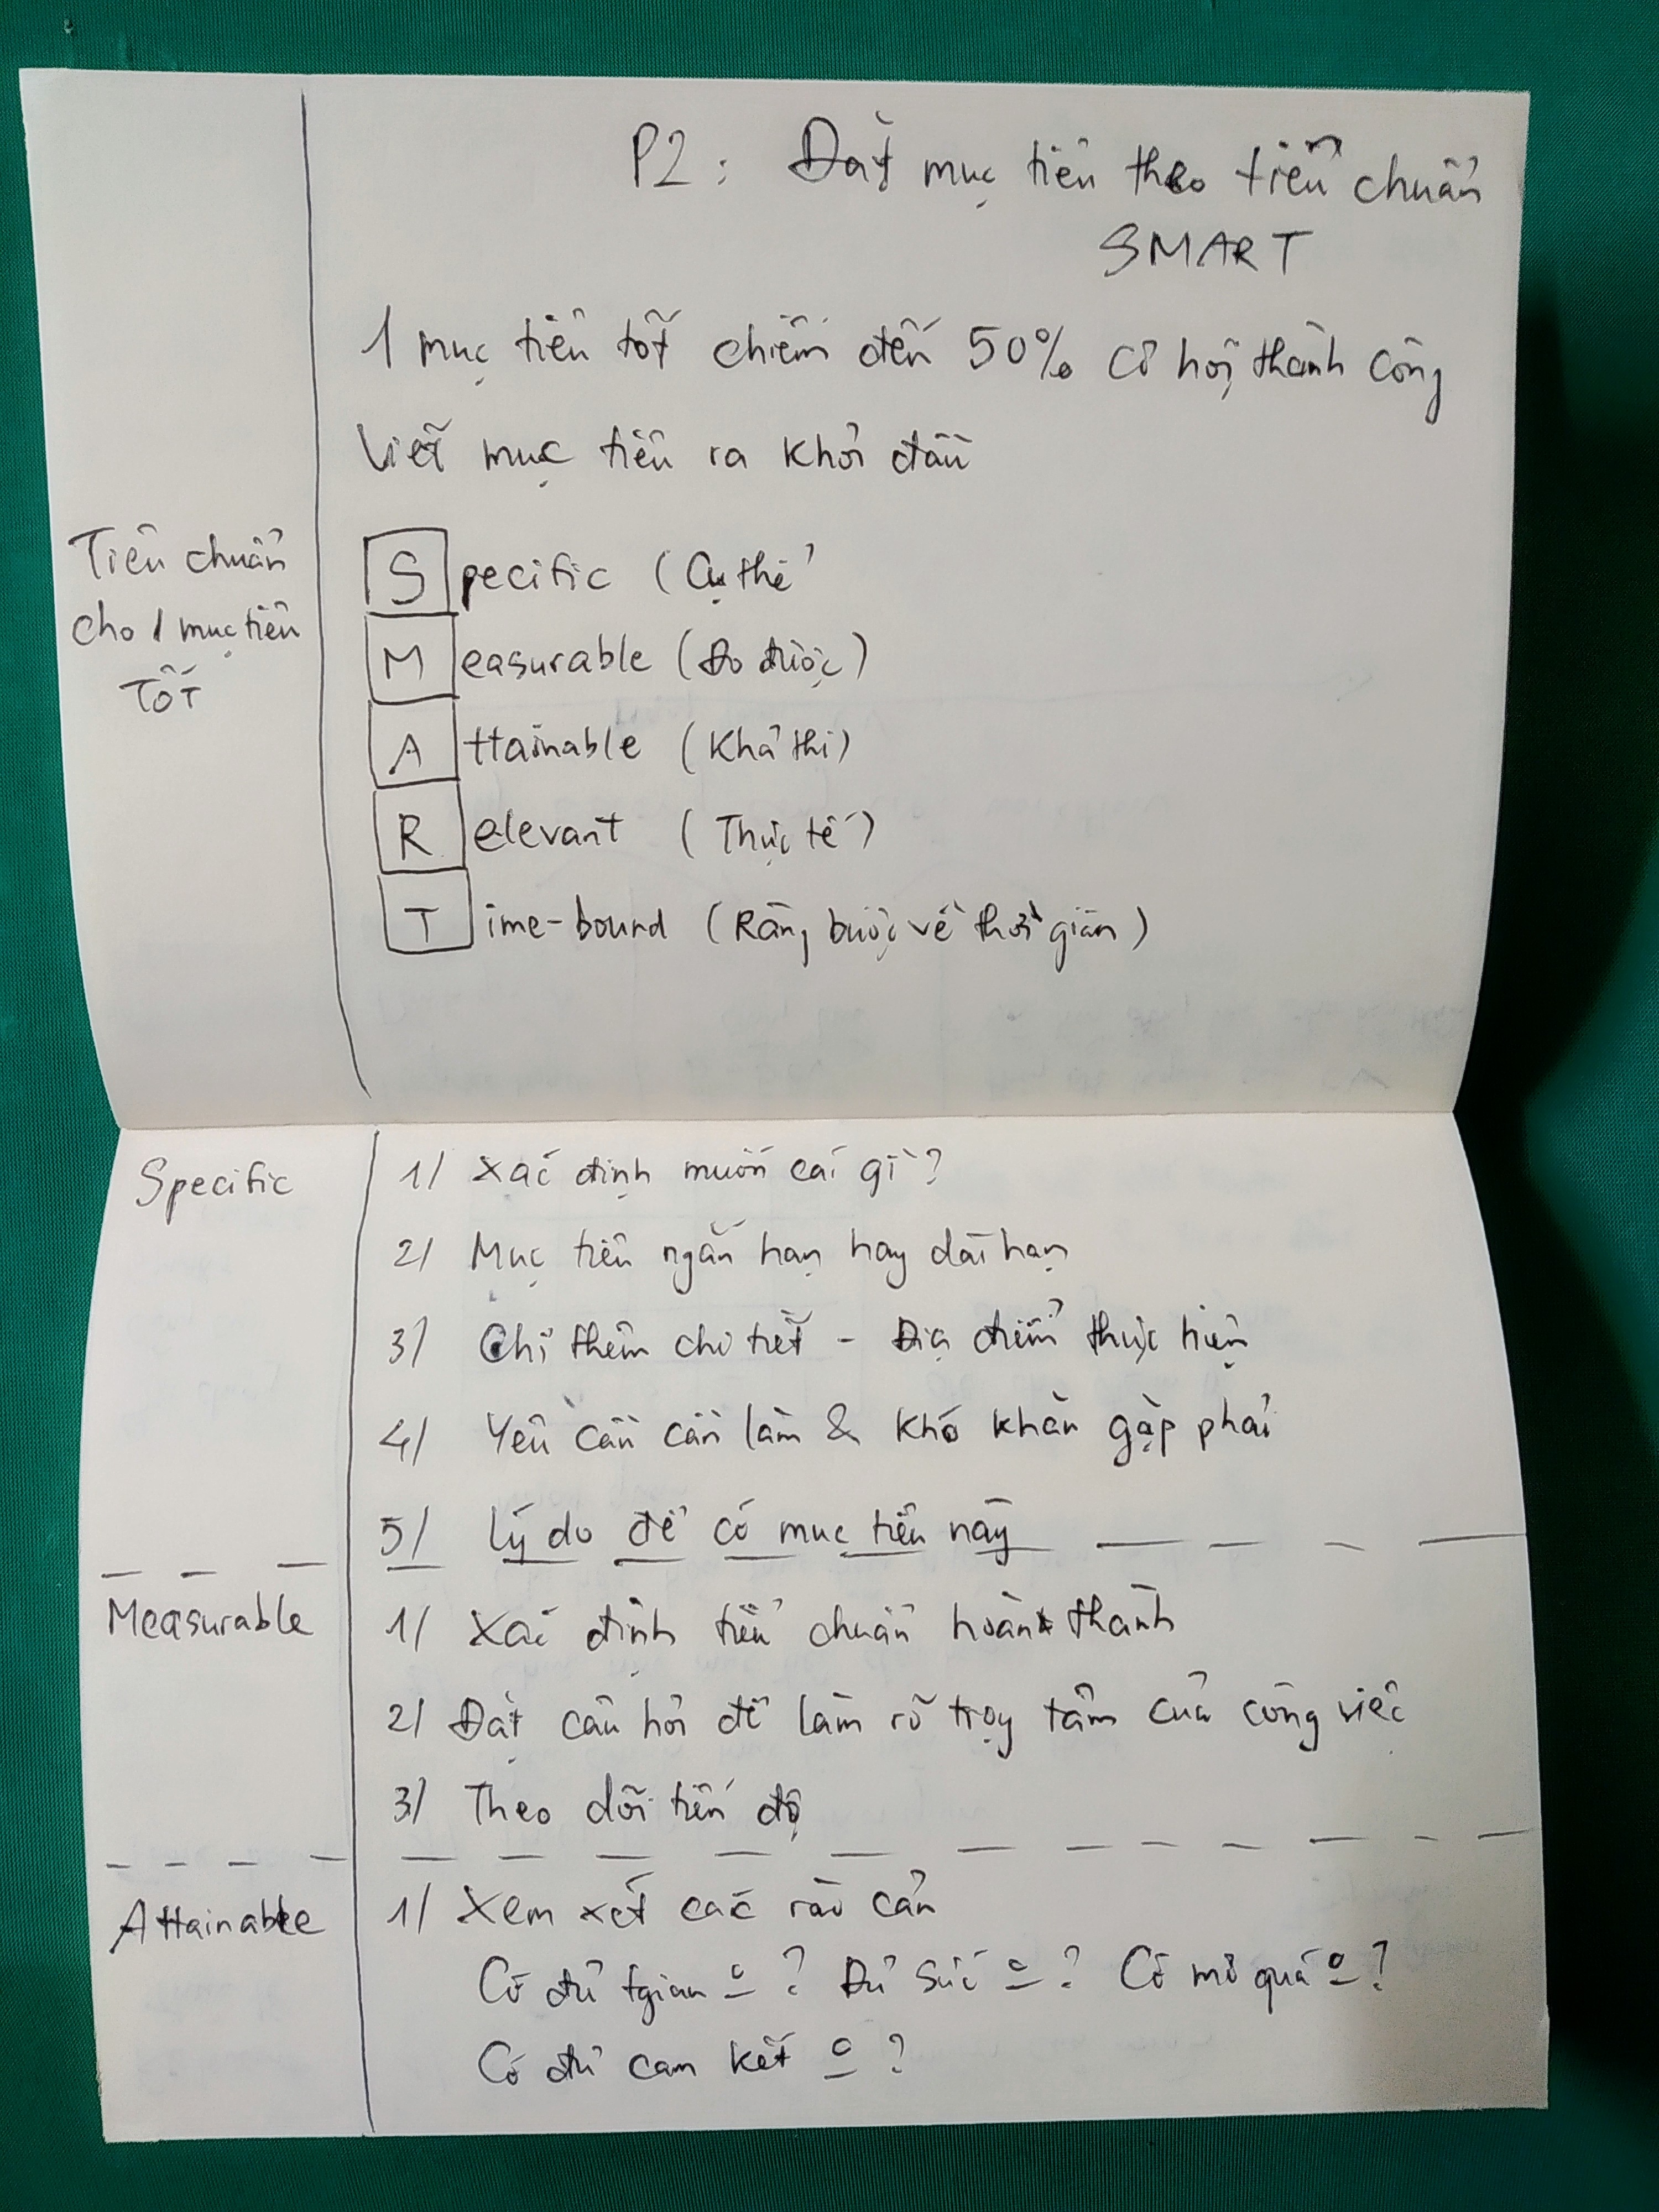 P2: Đặt mục tiêu theo tiêu chuẩn
SMART
1 mục tiêu tốt chiếm đến 50% cơ hội thành công
Viết mục tiêu ra khỏi đầu
Tiêu chuẩn
cho 1 mục tiêu
Tốt
Specific (Cụ thể
Measurable (Đo được)
Attainable (Khả thi)
Relevant (Thực tế)
Time-bound (Ràng buộc về thời gian)
Specific
1/ Xác định muốn cái gì?
2/ Mục tiêu ngắn hạn hay dài hạn
3/ Chi thêm chi tiết - Địa điểm thực hiện
4/ Yêu cầu cần làm & khó khăn gặp phải
5/ Lý do để có mục tiêu này
Measurable
1/ Xác định tiêu chuẩn hoàn thành
2/ Đặt câu hỏi để làm rõ trọg tâm của công việc
3/ Theo dõi tiến độ
Attainable
1/ Xem xét các rào cản
Có đủ tgian o ? Đủ sức o ? Có mơ quá o ?
Có đủ cam kết o ?